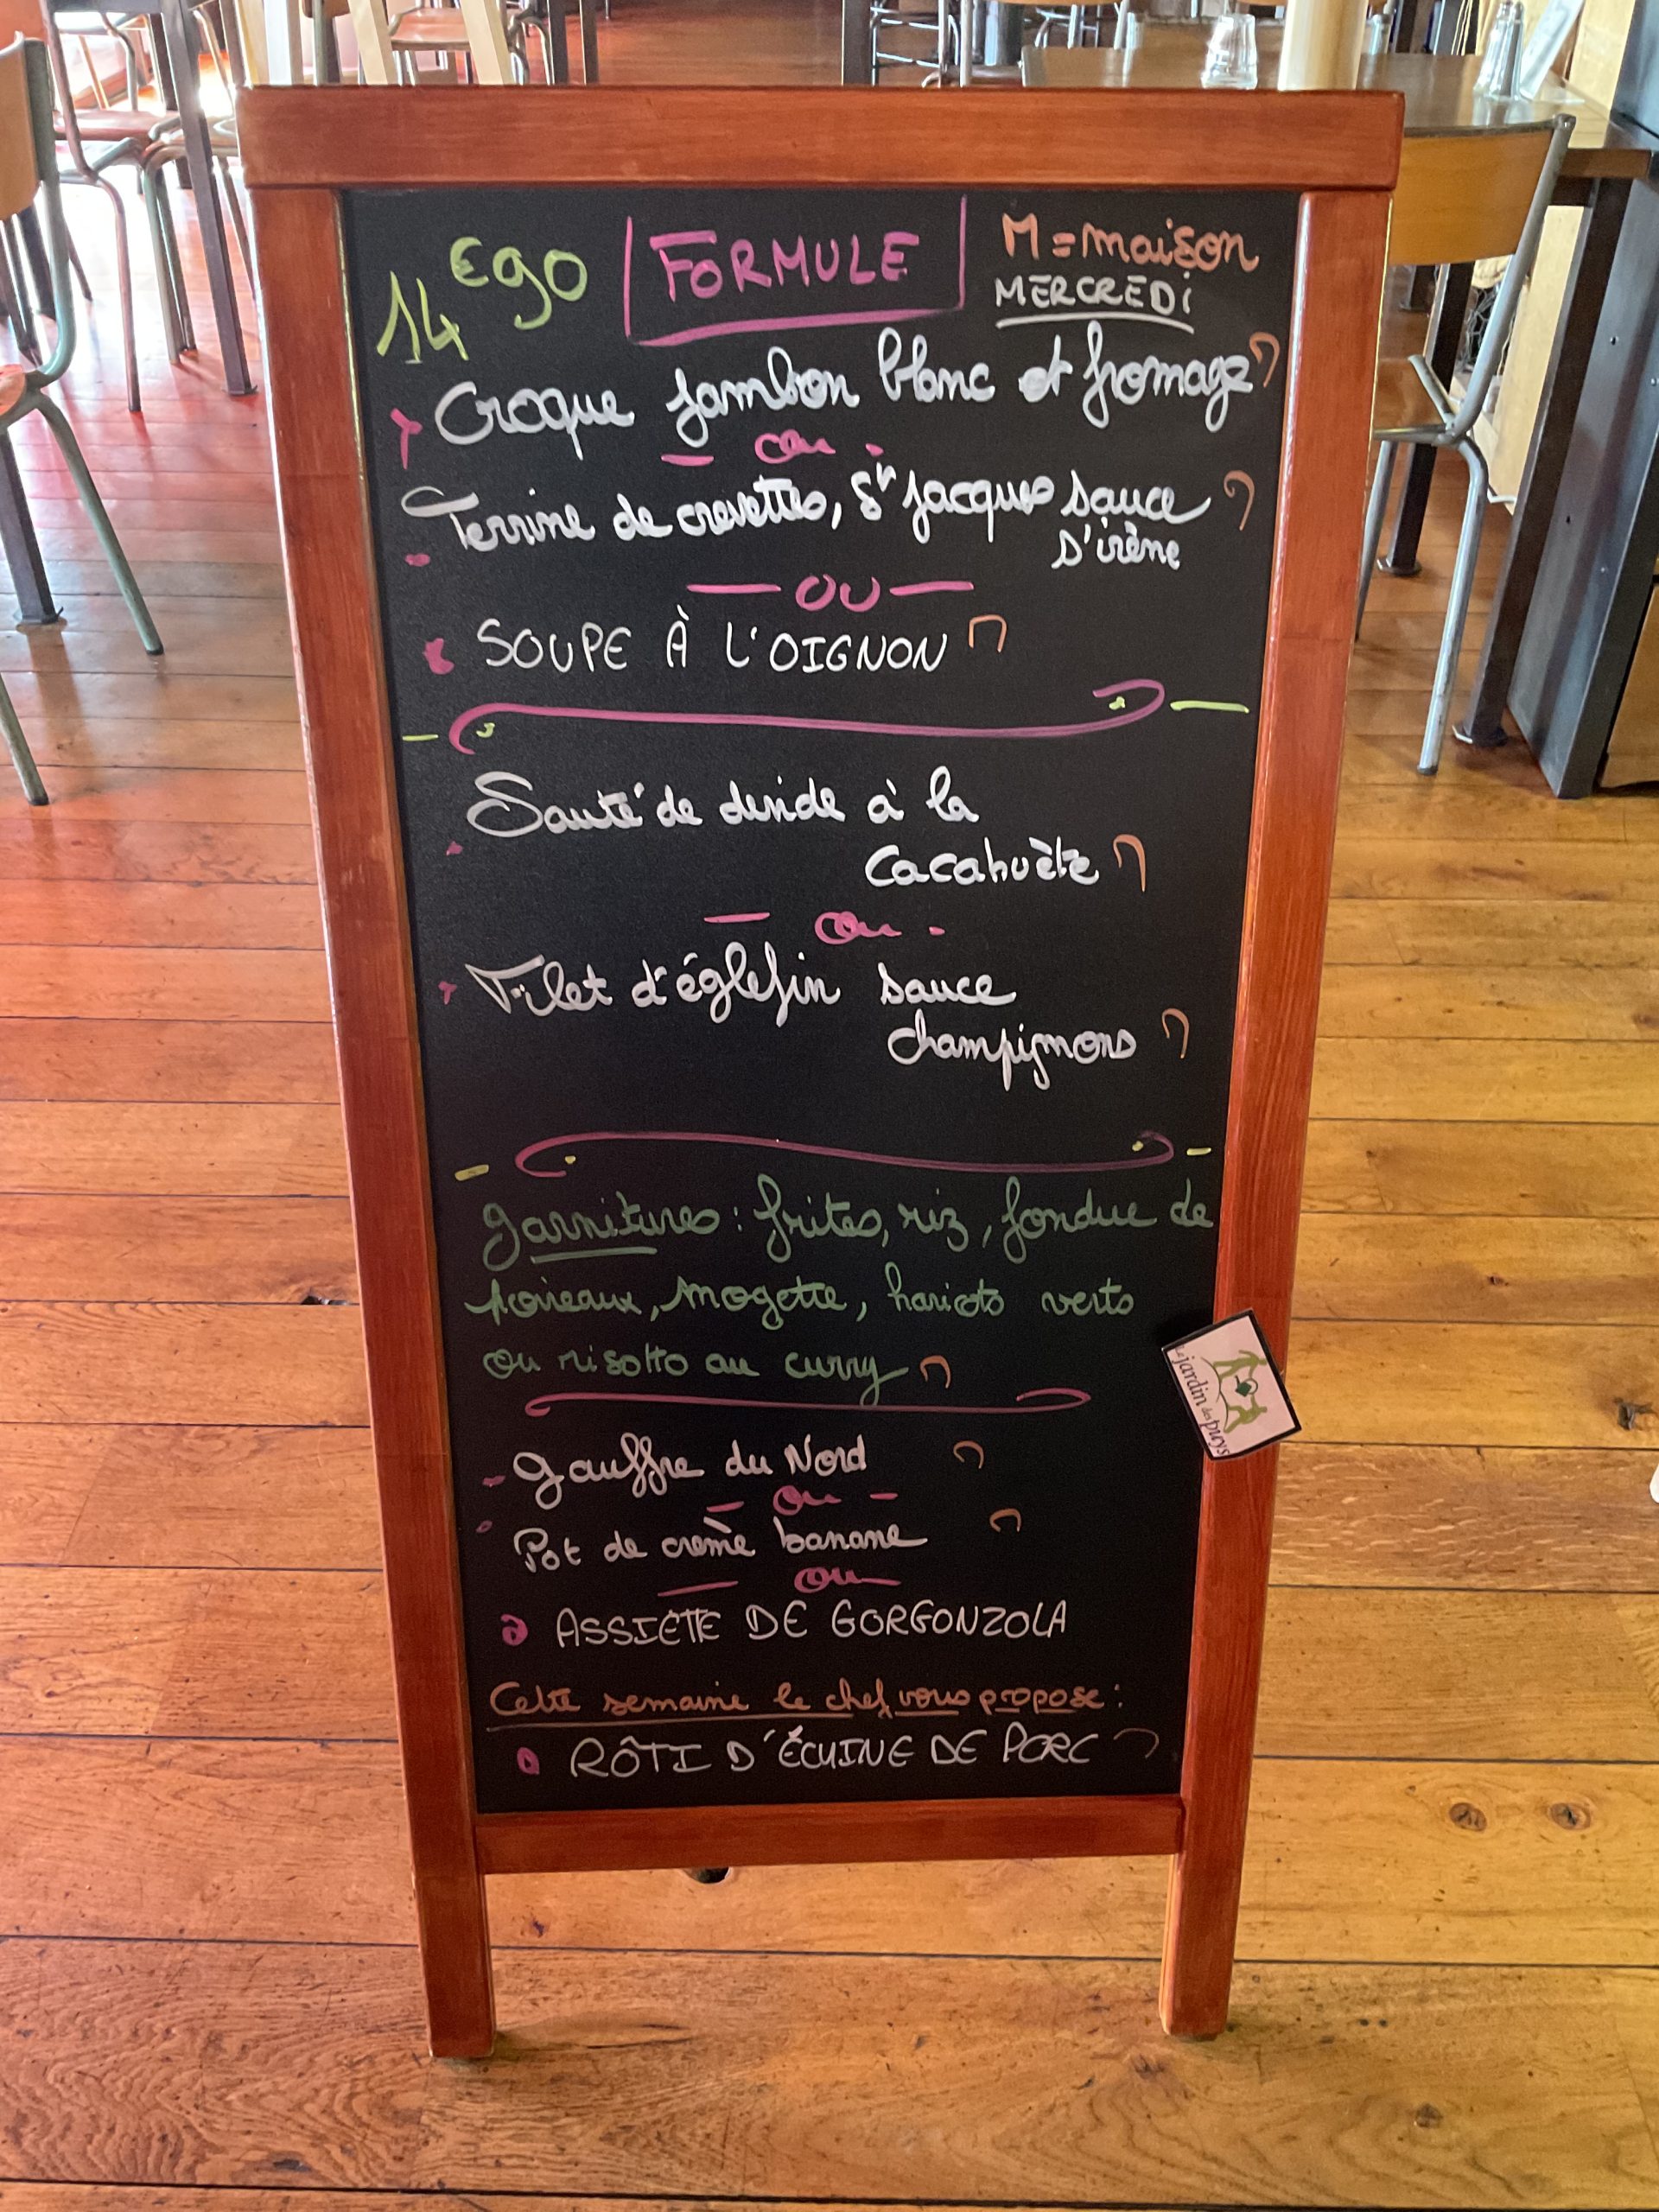 14€90 FORMULE M=maison
MERCREDi
Croque jambon blanc et fromage M
ou
Terrine de crevettes, St jacques sauce M
d'irène
OU
SOUPE À L'OIGNON M
Sauté de dinde à la
Cacahuète M
ou
Filet d'églefin sauce
champignons M
Garnitures : frites, riz, fondue de
poireaux, mogette, haricots verts
ou risotto au curry M
Gauffre du Nord M
ou
Pot de crème banane M
ou
ASSIETTE DE GORGONZOLA
Cette semaine le chef vous propose :
RÔTI D'ÉCHINE DE PORC M
Le jardin des puys